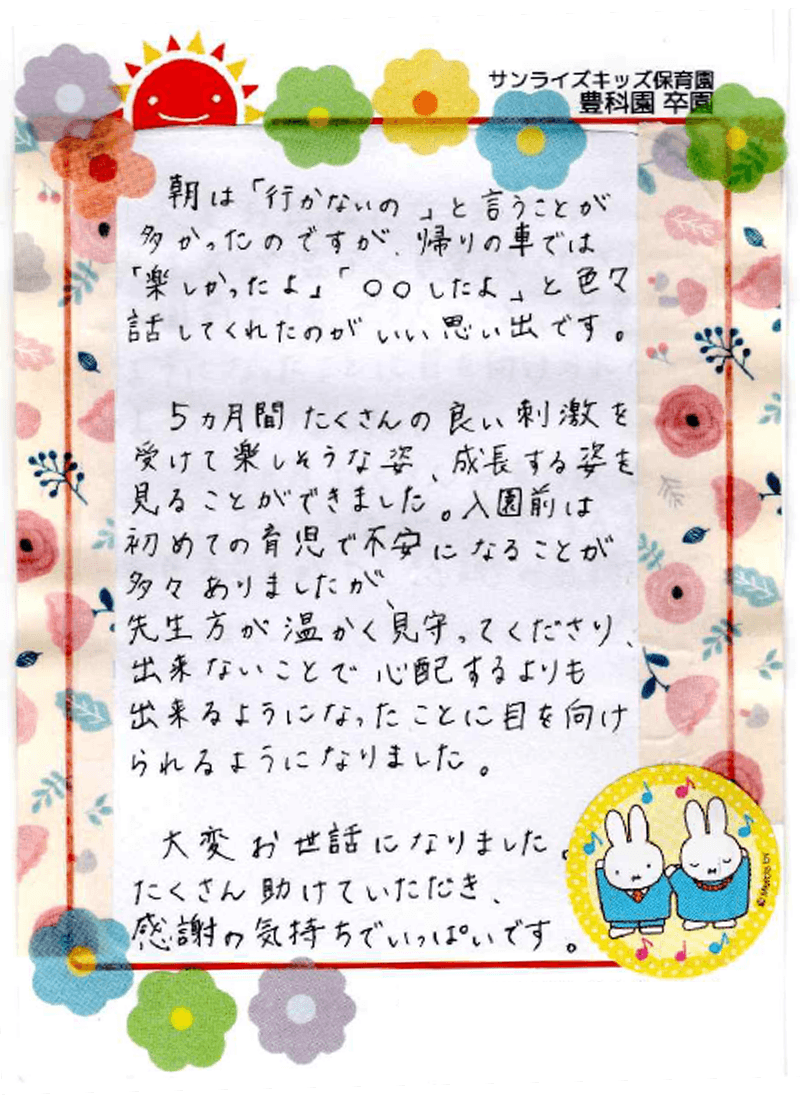 サンライズキッズ保育園
豊科園 卒園
朝は「行かないの」と言うことが
多かったのですが、帰りの車では
「楽しかったよ」「〇〇したよ」と色々
話してくれたのがいい思い出です。
5ヵ月間たくさんの良い刺激を
受けて楽しそうな姿、成長する姿を
見ることができました。入園前は
初めての育児で不安になることが
多々ありましたが、
先生方が温かく見守ってくださり、
出来ないことで心配するよりも
出来るようになったことに目を向け
られるようになりました。
大変お世話になりました。
たくさん助けていただき、
感謝の気持ちでいっぱいです。